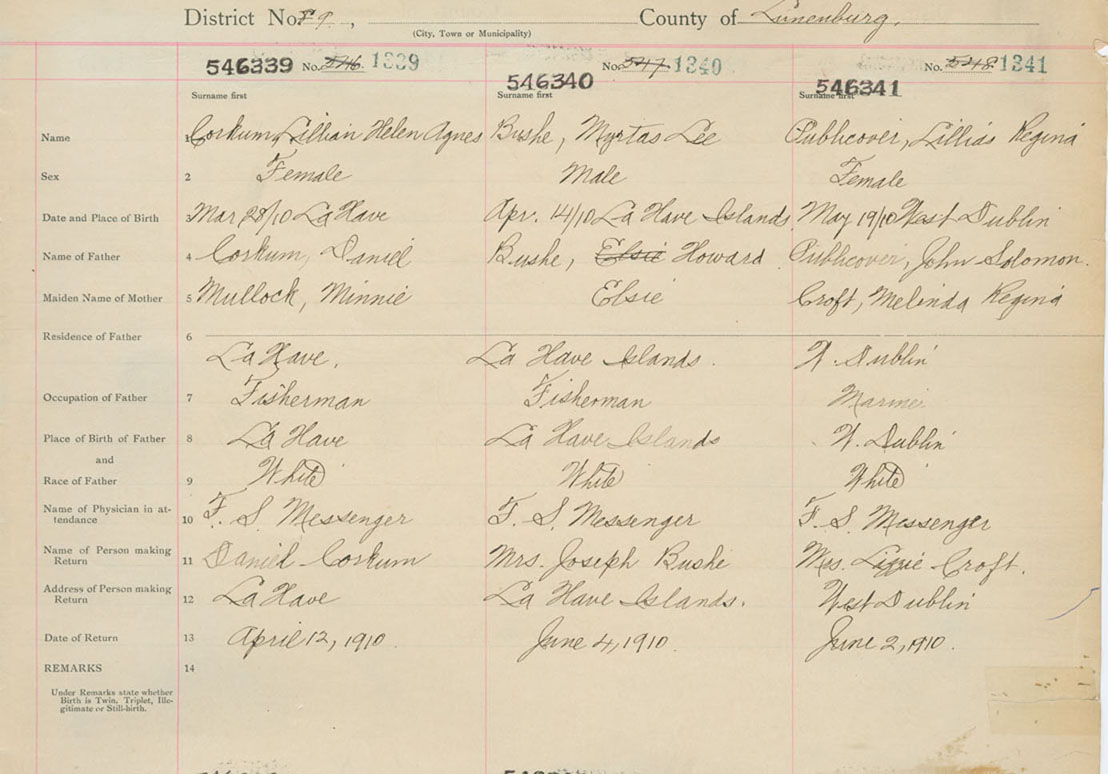 District No. 89, County of Lunenburg.
(City, Town or Municipality)
546339 No. 546 1339 546340 No. 547 1340 546341 No. 548 1341
Surname first Surname first Surname first
Name 1 Corkum, Lillian Helen Agnes Bushe, Myrtas Lee Publicover, Lillias Regina
Sex 2 Female Male Female
Date and Place of Birth 3 Mar 28/10 La Have Apr. 14/10 La Have Islands May 19/10 West Dublin
Name of Father 4 Corkum, Daniel Bushe, Elsie Howard Publicover, John Solomon.
Maiden Name of Mother 5 Mullock, Minnie Elsie Croft, Melinda Regina
Residence of Father 6
La Have. La Have Islands. W. Dublin
Occupation of Father 7 Fisherman Fisherman Mariner
Place of Birth of Father 8 La Have La Have Islands W. Dublin
and
Race of Father 9 White White White
Name of Physician in at-
tendance 10 F. S. Messenger F. S. Messenger F. S. Messenger
Name of Person making
Return 11 Daniel Corkum Mrs. Joseph Bushe Mrs. Lizzie Croft.
Address of Person making
Return 12 La Have La Have Islands. West Dublin
Date of Return 13 April 12, 1910. June 4, 1910. June 2, 1910.
REMARKS 14
Under Remarks state whether
Birth is Twin, Triplet, Ille-
gitimate or Still-birth.